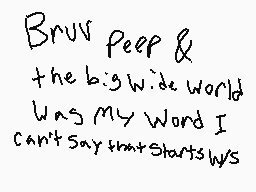 Bruv Peep &
the big wide world
was my word I
can't say that starts w/s